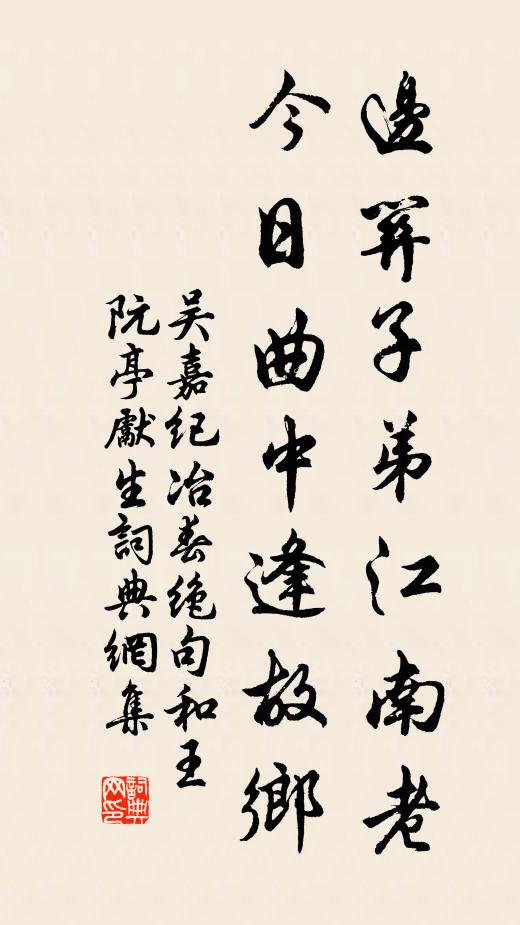 邊關子弟江南老
今日曲中逢故鄉
吴嘉纪冶春绝句和王
阮亭獻生詞典網集
詞典
网印